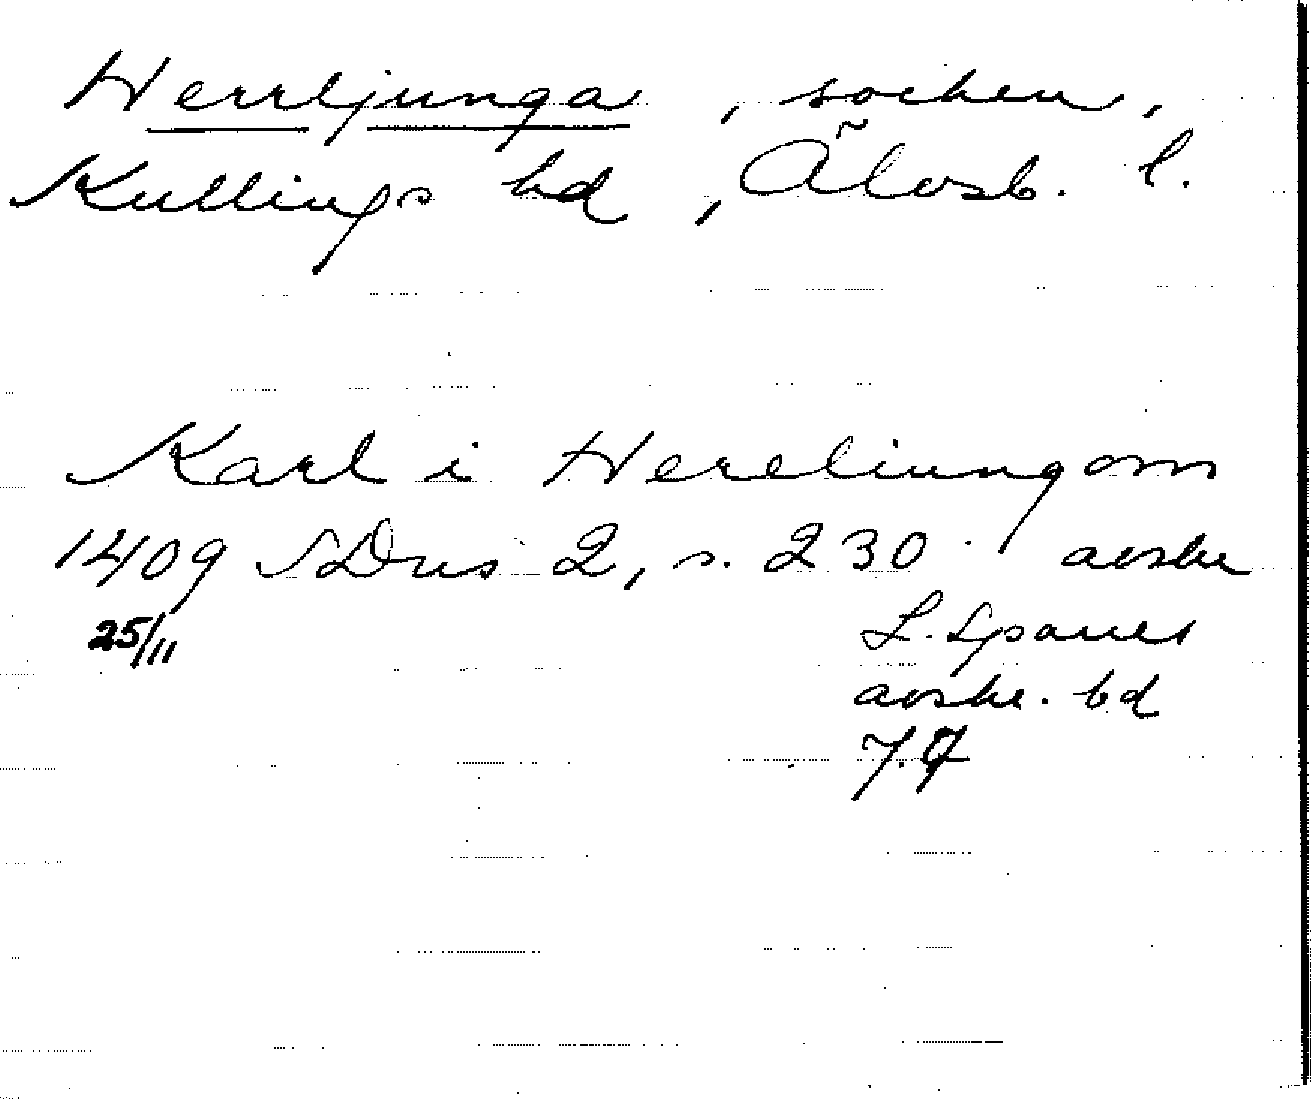 Herrljunga, socken,
Kullings hd, Älvsb. l.
Karl i Hereliungom
1409 SDns 2, s. 230. avskr
25/11
L. Spanel
avskr. bd
7.7